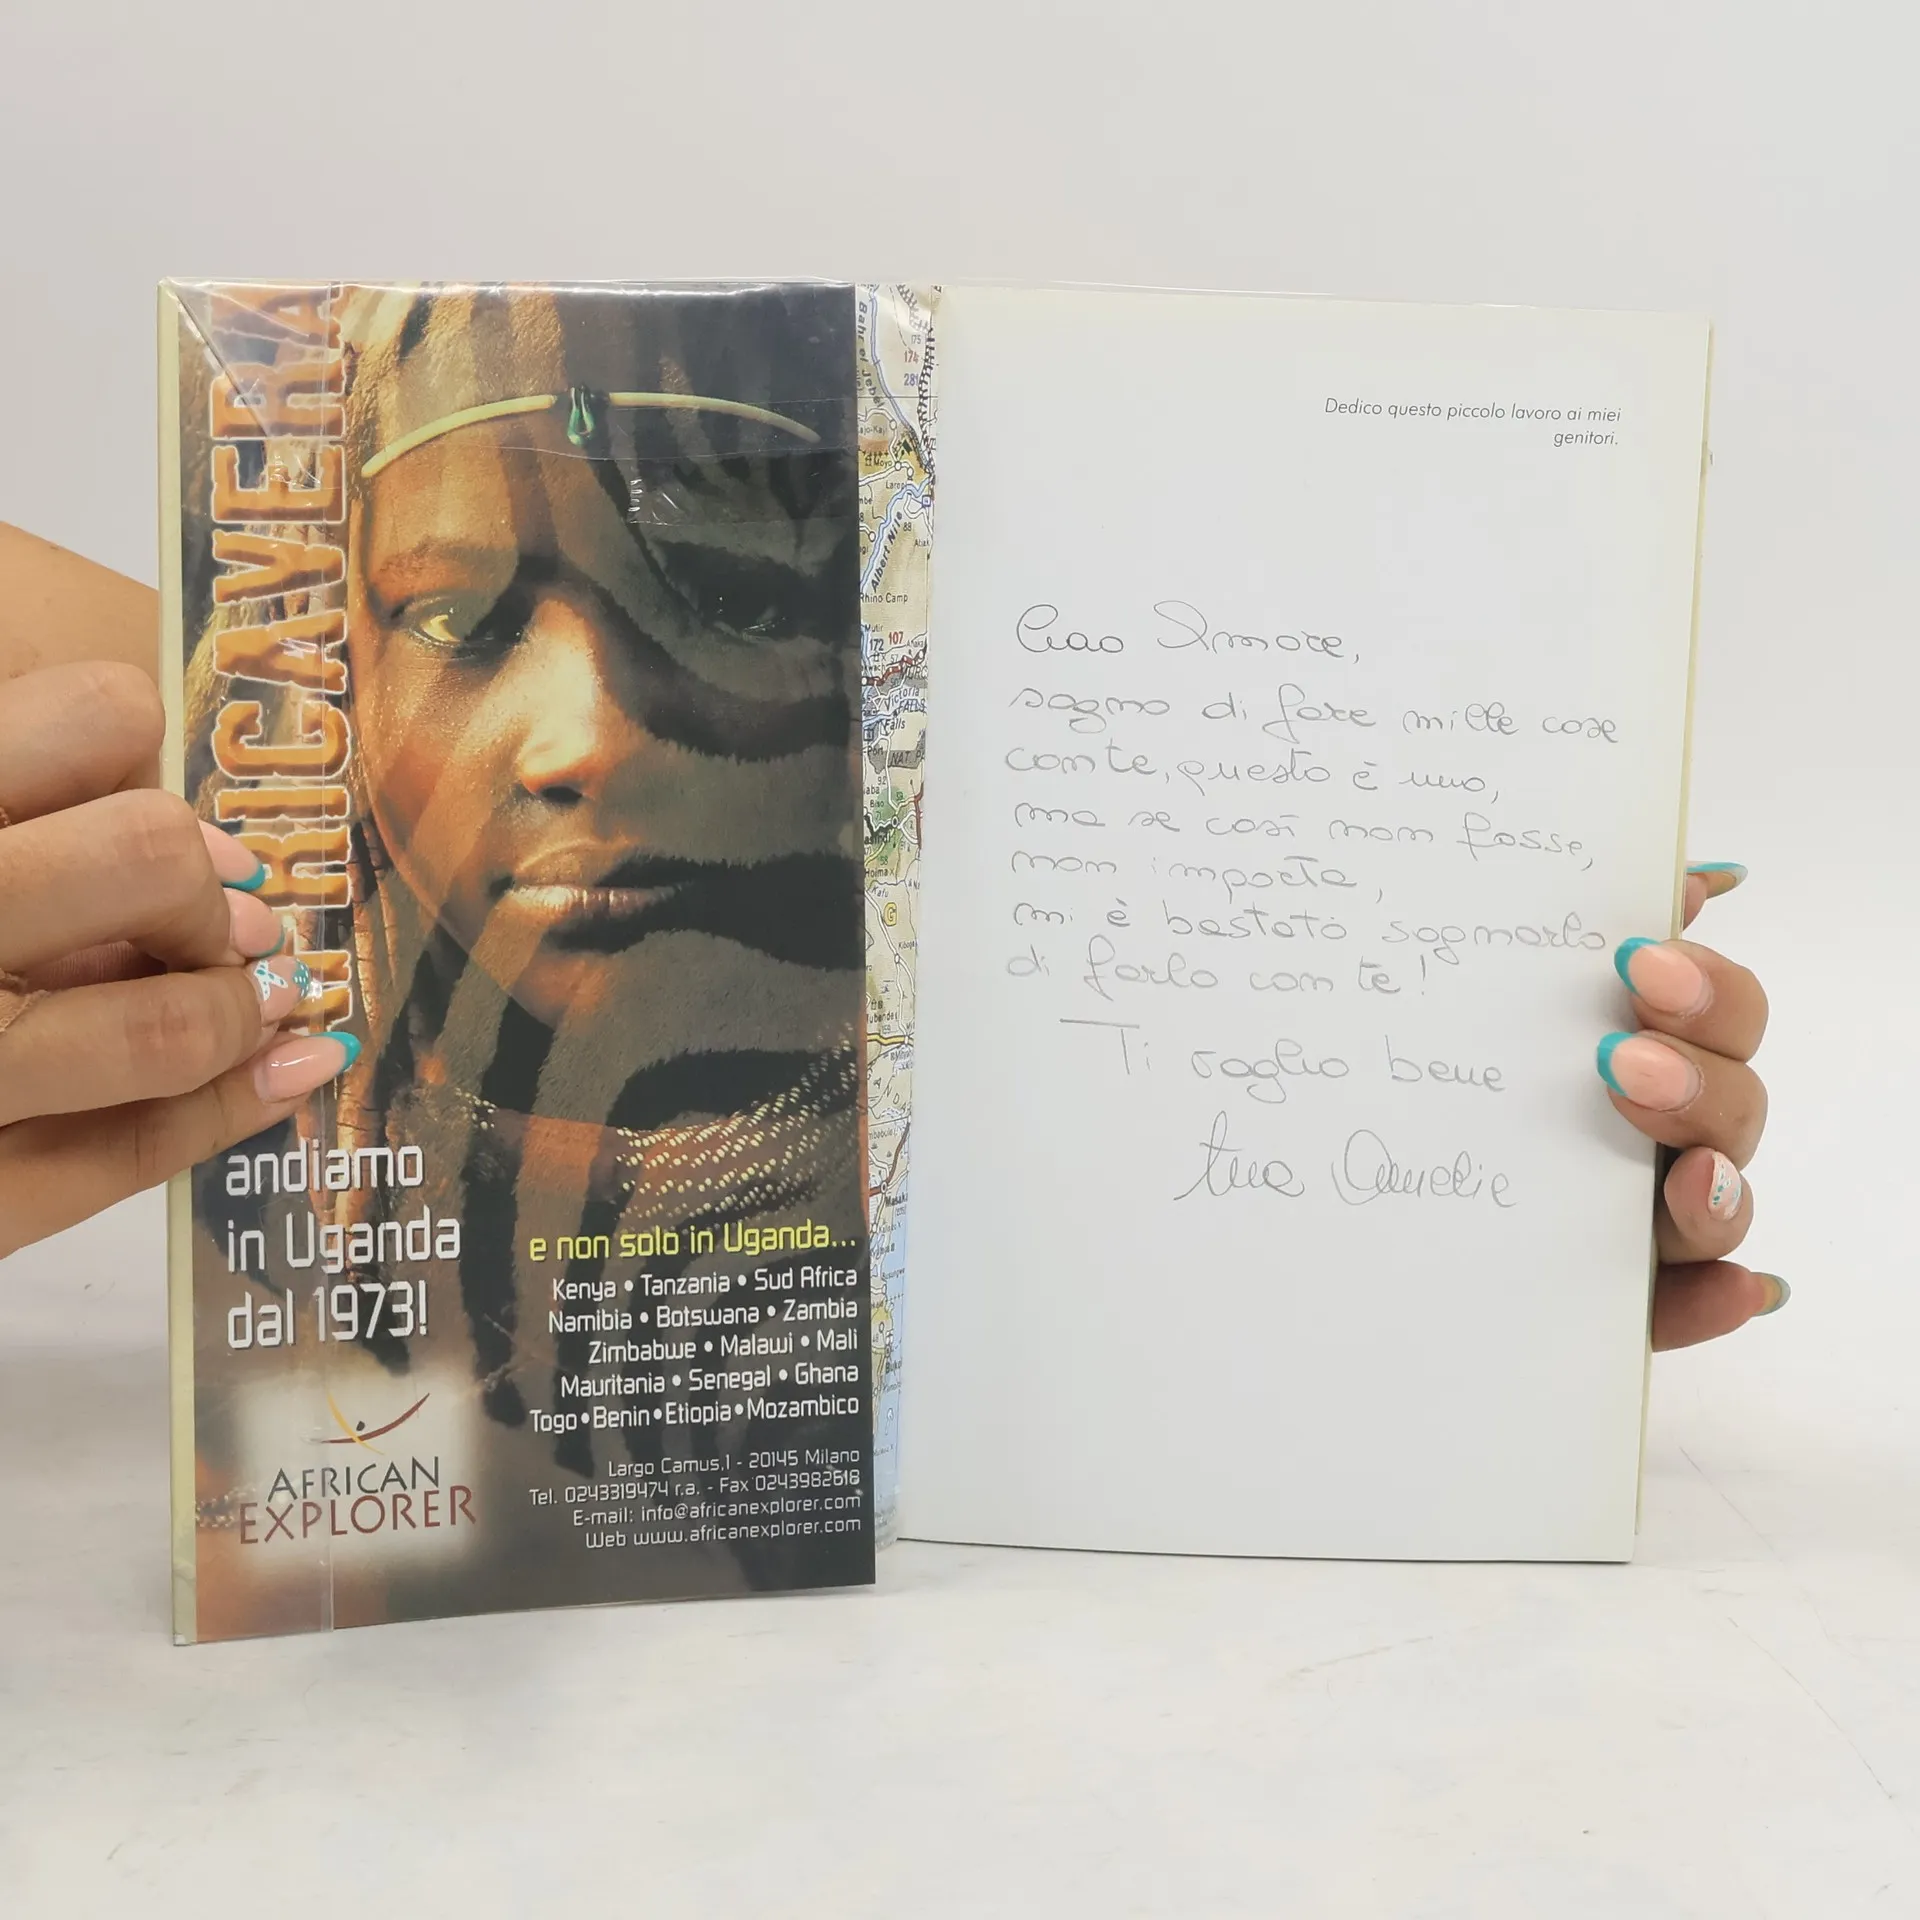 AFRICAVERA
andiamo
in Uganda
dal 1973!
e non solo in Uganda...
Kenya • Tanzania • Sud Africa
Namibia • Botswana • Zambia
Zimbabwe • Malawi • Mali
Mauritania • Senegal • Ghana
Togo • Benin • Etiopia • Mozambico
AFRICAN
EXPLORER
Largo Camus,1 - 20145 Milano
Tel. 0243319474 r.a. - Fax 0243982618
E-mail: info@africanexplorer.com
Web www.africanexplorer.com
Albert Nile
Rhino Camp
Falls
Dedico questo piccolo lavoro ai miei
genitori.
Ciao Amore,
sogno di fare mille cose
con te, questo è uno,
ma se così non fosse,
non importa,
mi è bastato sognarlo
di farlo con te!
Ti voglio bene
tua Amelie